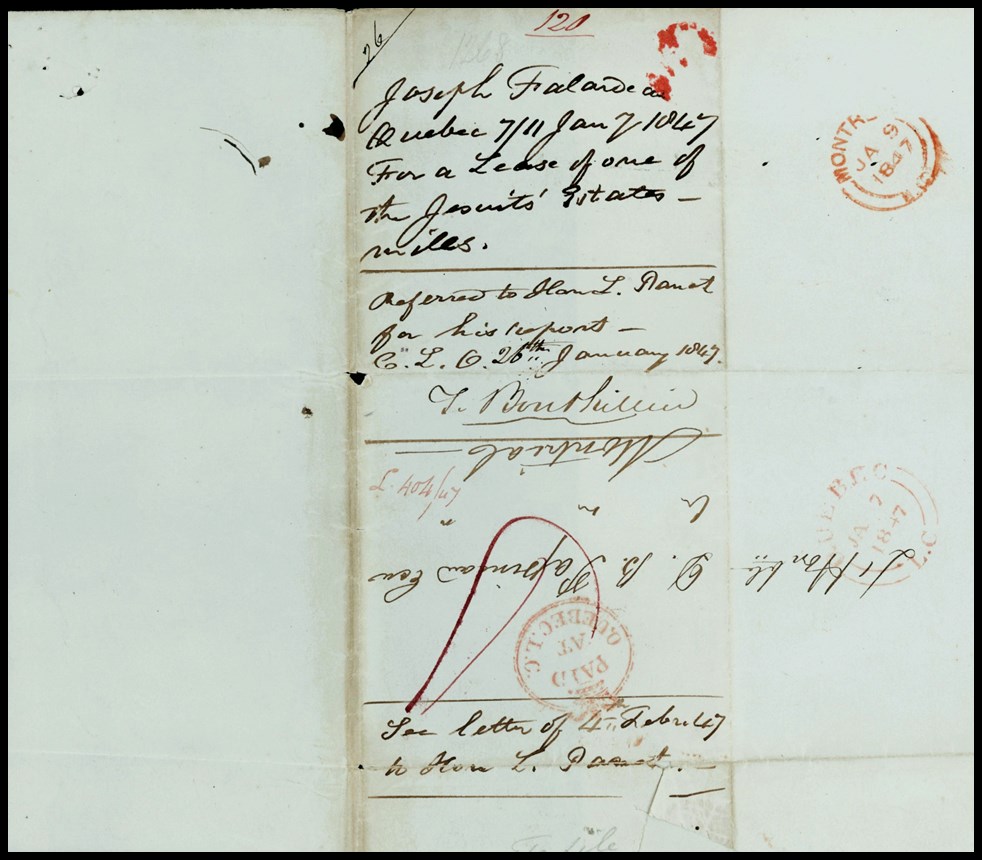 26
120
1368
Joseph Falardeau
Quebec 7/11 Jan 7 1847
For a Lease of one of
the Jesuits' Estates –
mills.
Referred to Hon L. Panet
for his report –
C. L. O. 26th January 1847.
T. Bouthillier
Montréal
L. 404/47
L'Honble D. B. Papineau Ecr
QUEBEC. L.C.
PAID
AT
See letter of 4th Febru 47
to Hon L. Panet. –
To file
MONTR
JA 9
1847
QUEBEC
JA 7
1847
L.C.